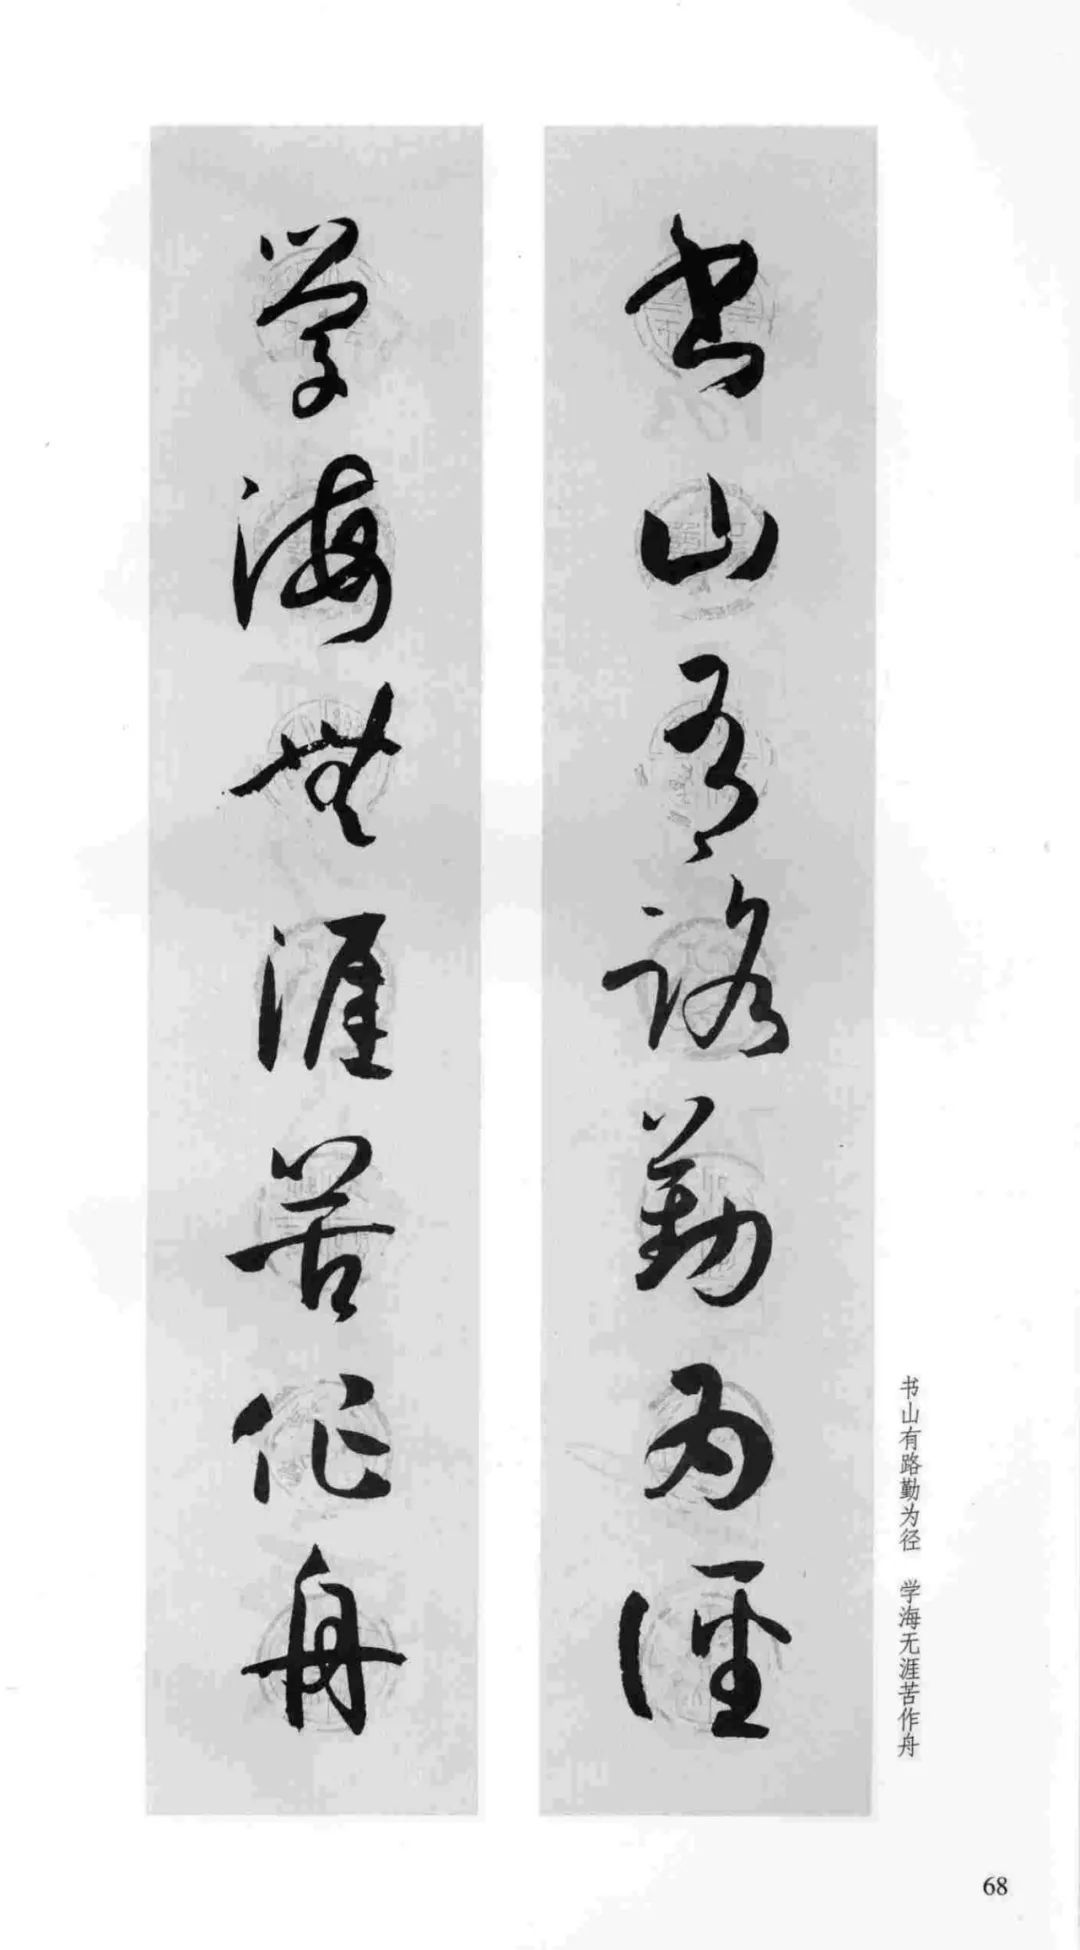 书山有路勤为径
学海无涯苦作舟
书山有路勤为径 学海无涯苦作舟
68